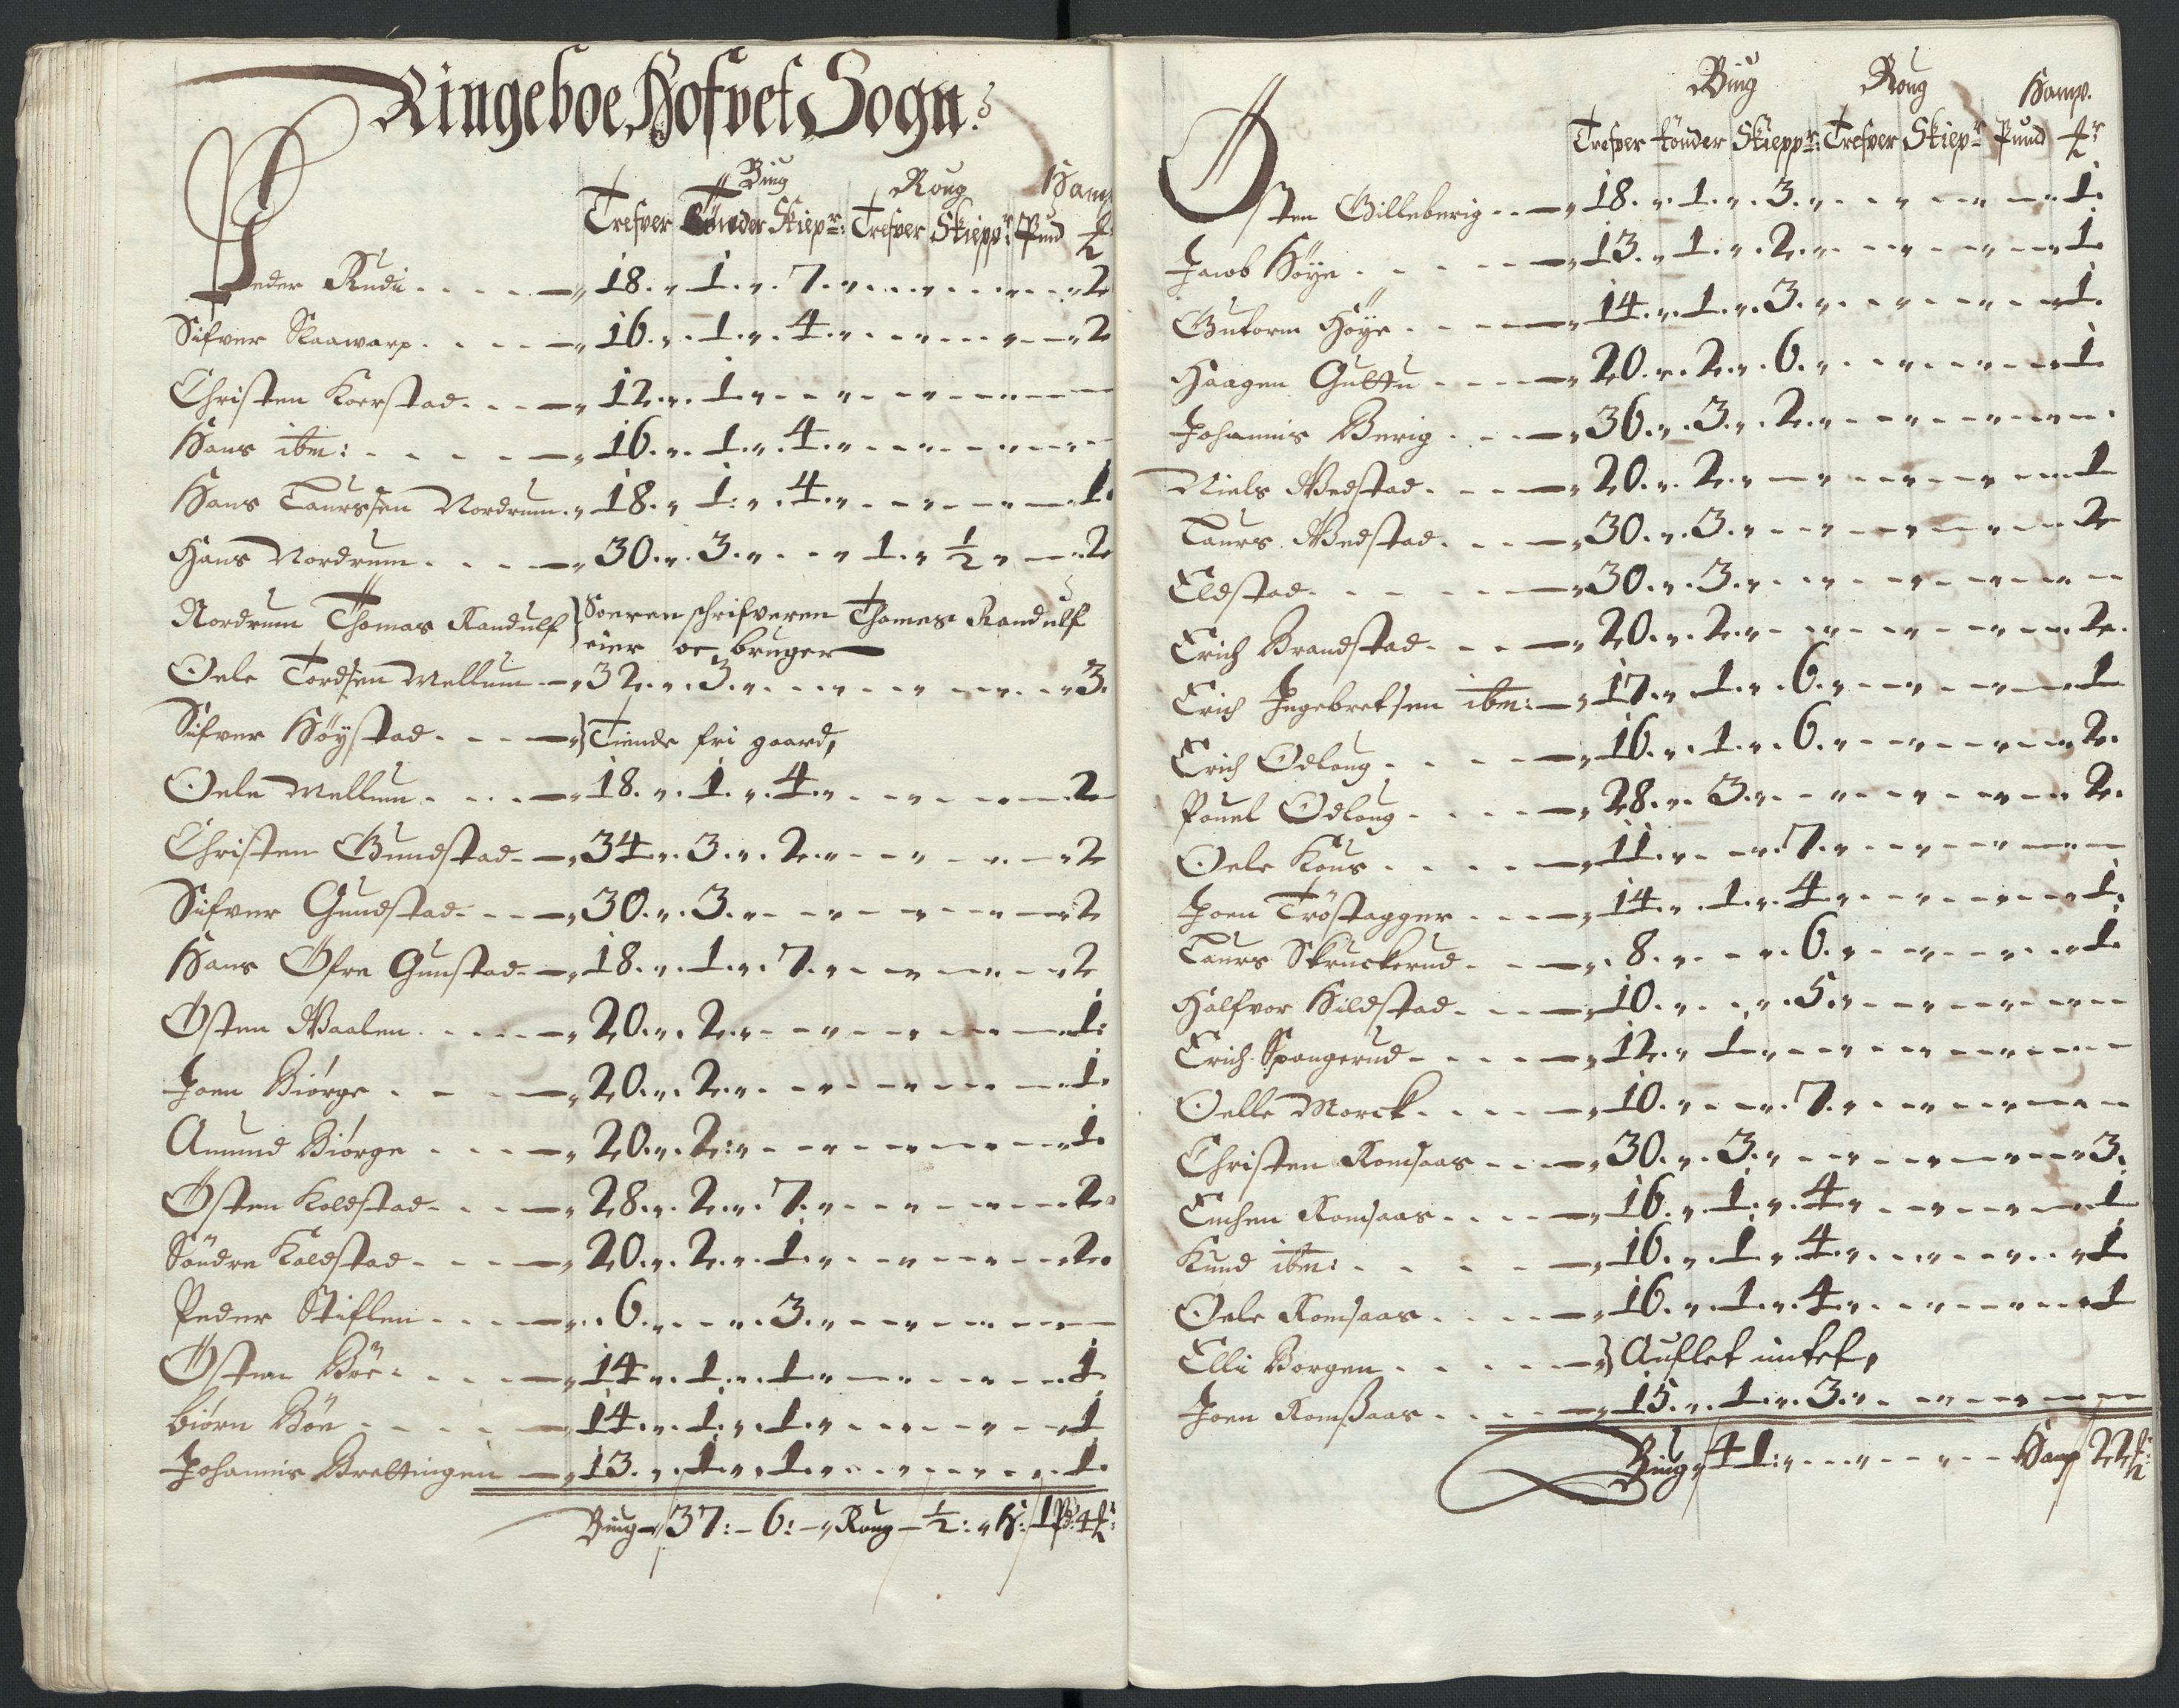 Ringeboe Hofvet Sogn
Biug Roug Hamp
Trefver Tönder Skiepr: Trefver Skieppr Pund
Peder Rudi 18. 1. 7. 2
Sifver Skaawarp 16. 1. 4. 2
Christen Koerstad 12. 1.
Hans ibm: 16. 1. 4.
Hans Laurssen Nordrum 18. 1: 4. 1
Hans Nordrum 30. 3. 1. ½ 2
Nordrum Thomas Randulf } Soeren schrifveren Thomes Randulf
eier oc bruger
Oele Tordsen Mellum 32. 3. 3.
Sifver Höystad } Tiende fri gaard,
Oele Mellum 18. 1. 4. 2
Christen Gundstad 34. 3. 2. 2
Sifver Gundstad 30. 3. 2
Hans Öfre Gunstad 18. 1. 7. 2
Östen Waalen 20. 2. 1:
Joen Biörge 20. 2. 1.
Amund Biörge 20. 2: 1.
Östen Koldstad 28. 2. 7. 2.
Söndre Koldstad 20. 2. 1. 2.
Peder Stiflen 6. 3.
Östen Böe 14. 1. 1. 1
Biörn Böe 14. 1. 1. 1
Johannis Brettingen 13. 1. 1. 1.
Biug 37: 6: Roug ½: H: 1 Pd: 4
Biug Roug Hamp.
Trefver tönder Skieppr: Trefver Skiepr Pund
Östen Gilleberig 18. 1. 3. 1.
Jacob Höye 13. 1. 2. 1.
Gutorm Höye 14. 1. 3. 1.
Haagen Guttu 20. 2. 6. 1
Johannis Berig 36. 3. 2.
Niels Wedstad 20. 2. 1
Laurs Wedstad 30. 3. 2
Eldstad 30. 3.
Erich Brandstad 20. 2. 2.
Erich Ingebretsen ibm: 17. 1. 6. 1
Erich Odloug 16. 1. 6. 2.
Pouel Odloug 28. 3. 2.
Oele Kous 11. 7.
Joen Tröstagger 14. 1. 4. 1.
Laurs Skruckerud 8. 6. 1.
Halfvor Hildstad 10. 5.
Erich Spangerud 12. 1.
Oelle Morck 10. 7.
Christen Romsaas 30. 3. 3.
Enchen Romsaas 16. 1. 4. 1
Knud ibm: 16. 1. 4. 1
Oele Romsaas 16. 1. 4. 1
Elli Borgen } Auflet intet,
Joen Romssaas 15. 1. 3.
Biug 41: Hamp 22